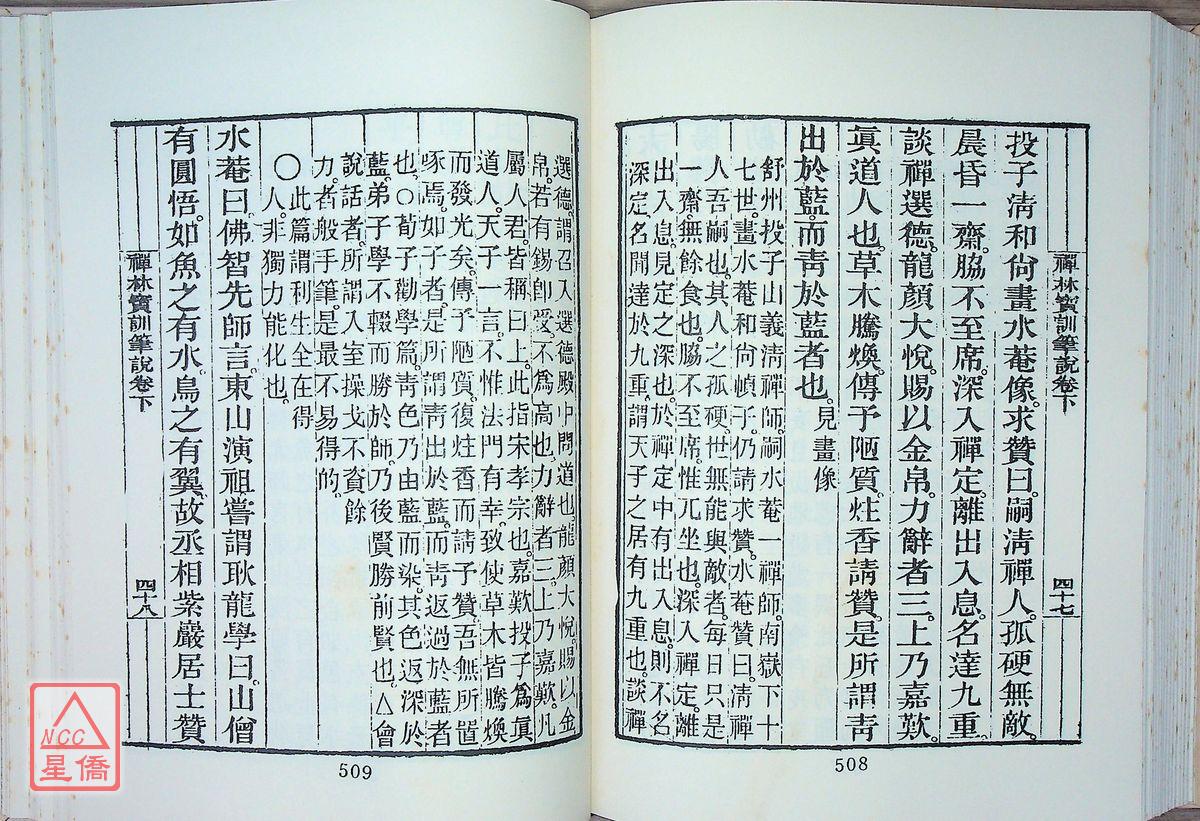 禪林寶訓筆說卷下
四十七
投子淸和尙畫水菴像。求贊曰。嗣淸禪人。孤硬無敵。
晨昏一齋。脇不至席。深入禪定。離出入息。名達九重。
談禪選德。龍顏大悅。賜以金帛。力辭者三。上乃嘉歎。
眞道人也。草木騰煥。傳予陋質。炷香請贊。是所謂靑
出於藍。而靑於藍者也。見畫像
舒州投子山義淸禪師。嗣水菴一禪師。南嶽下十
七世。畫水菴和尙幀子。仍請求贊。水菴贊曰。淸禪
人吾嗣也。其人之孤硬。世無能與敵者。每日只是
一齋。無餘食也。脇不至席。惟兀坐也。深入禪定。離
出入息。見定之深也。於禪定中有出入息。則不名
深定。名聞達於九重。謂天子之居有九重也。談禪
508
選德。謂召入選德殿中問道也。龍顏大悅。賜以金
帛。若有錫卽受。不爲高也。力辭者三。上乃嘉歎。凡
屬人君。皆稱曰上。此指宋孝宗也。嘉歎投子爲眞
道人。天子一言。不惟法門有幸。致使草木皆騰煥
而發光矣。傳予陋質。復炷香而請予贊。吾無所置
啄焉。如子者。是所謂靑出於藍。而靑返過於藍者
也。○荀子勸學篇。靑色乃由藍而染。其色返深於
藍。弟子學不輟而勝於師。乃後賢勝前賢也。△會
說話者。所謂入室操戈不資餘
力。者般手筆。是最不易得的。
○此篇謂利生全在得
人。非獨力能化也。
水菴曰。佛智先師言。東山演祖。嘗謂耿龍學曰。山僧
有圓悟。如魚之有水。鳥之有翼。故丞相紫巖居士贊
禪林寶訓筆說卷下
四十八
509
NCC
星僑